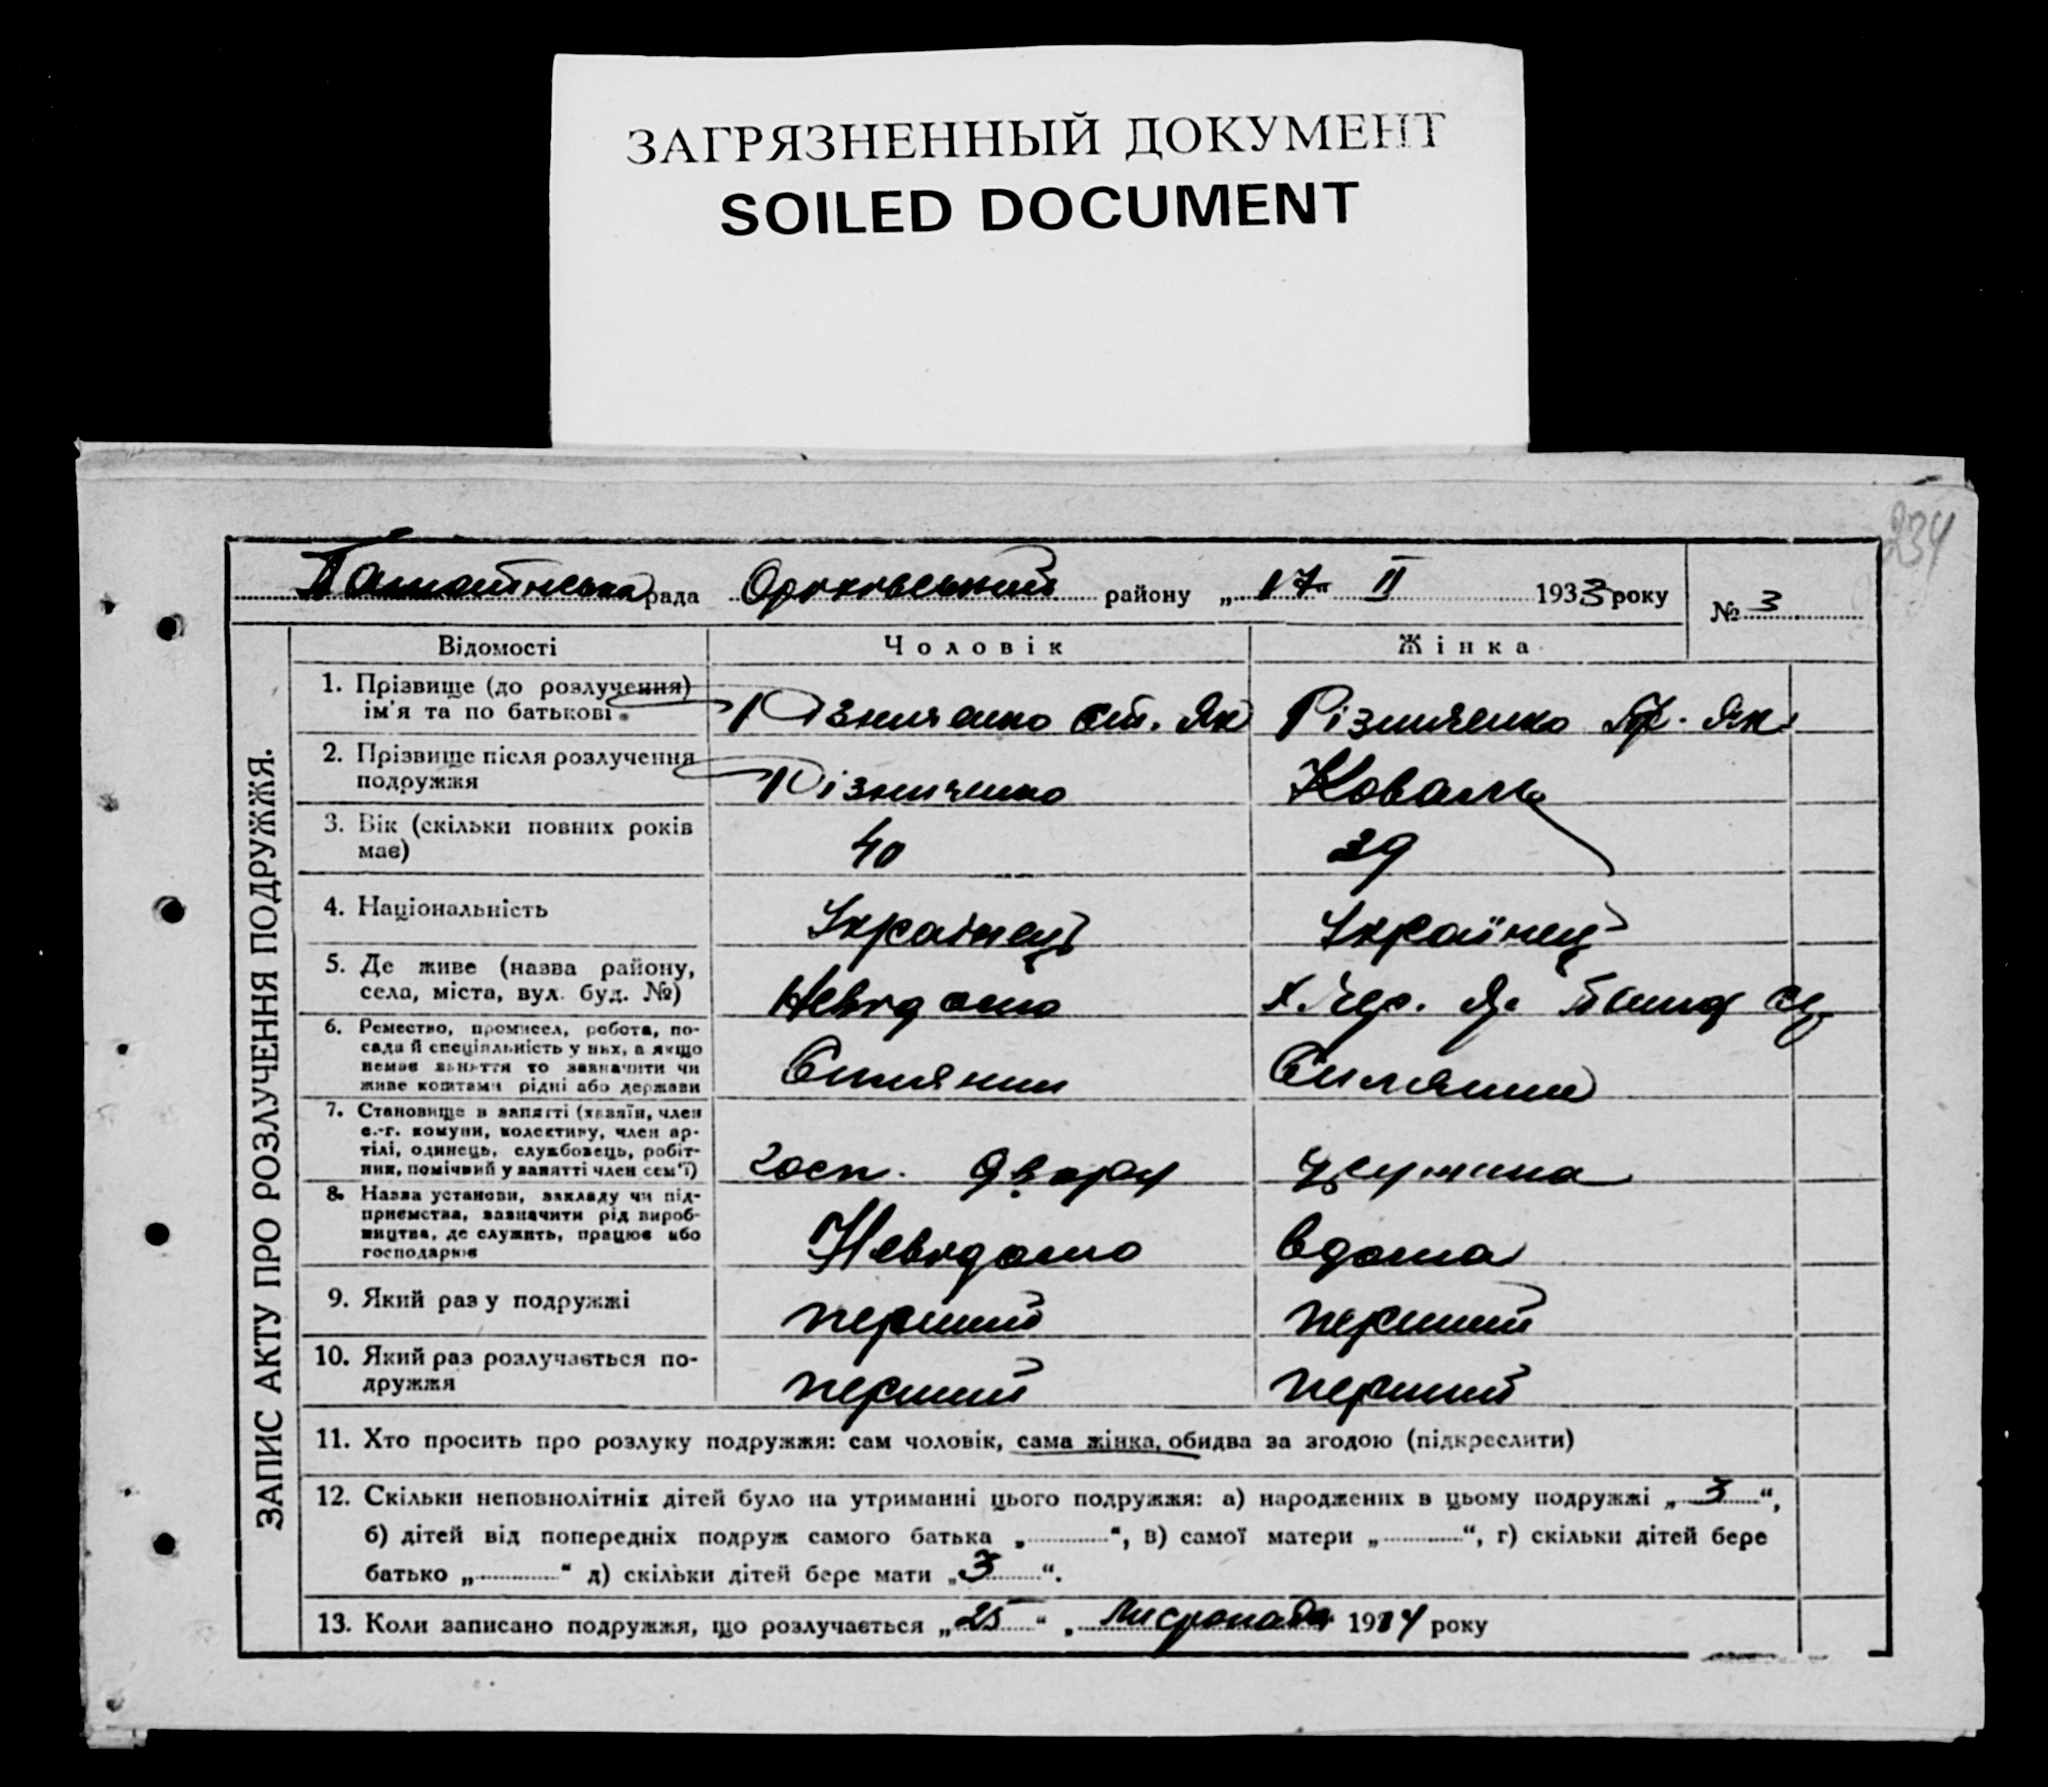 ЗАГРЯЗНЕННЫЙ ДОКУМЕНТ
SOILED DOCUMENT
234
рада району „17“ II 1933 року № 3
ЗАПИС АКТУ ПРО РОЗЛУЧЕННЯ ПОДРУЖЖЯ.
Відомості Чоловік Жінка
1. Прізвище (до розлучення)
ім'я та по батькові
Різниченко Ст. Як Різниченко Як.
2. Прізвище після розлучення
подружжя
Різниченко Коваль
3. Вік (скільки повних років
має)
40 39
4. Національність
Українец Українец
5. Де живе (назва району,
села, міста, вул. буд. №)
Невідомо
6. Ремество, промисел, робота, по-
сада й спеціяльність у них, а якщо
немає заняття то зазначити чи
живе коштами рідні або держави
Силянин Силянин
7. Становище в занятті (хазяїн, член
с.-г. комуни, колективу, член ар-
тілі, одинець, службовець, робіт-
ник, помічний у занятті член сем'ї)
госп. двору
8. Назва установи, закладу чи під-
приємства, зазначити рід вироб-
ництва, де служить, працює або
господарює
Невідомо вдома
9. Який раз у подружжі
перший перший
10. Який раз розлучається по-
дружжя
перший перший
11. Хто просить про розлуку подружжя: сам чоловік, сама жінка, обидва за згодою (підкреслити)
12. Скільки неповнолітніх дітей було на утриманні цього подружжя: а) народжених в цьому подружжі „3“,
б) дітей від попередніх подруж самого батька „............“, в) самої матери „............“, г) скільки дітей бере
батько „............“ д) скільки дітей бере мати „3“.
13. Коли записано подружжя, що розлучається „25“ „ Листопада 1914 року